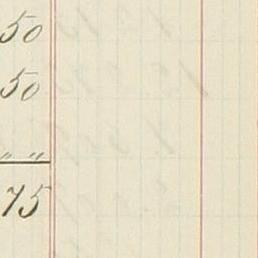 50
50
" "
75